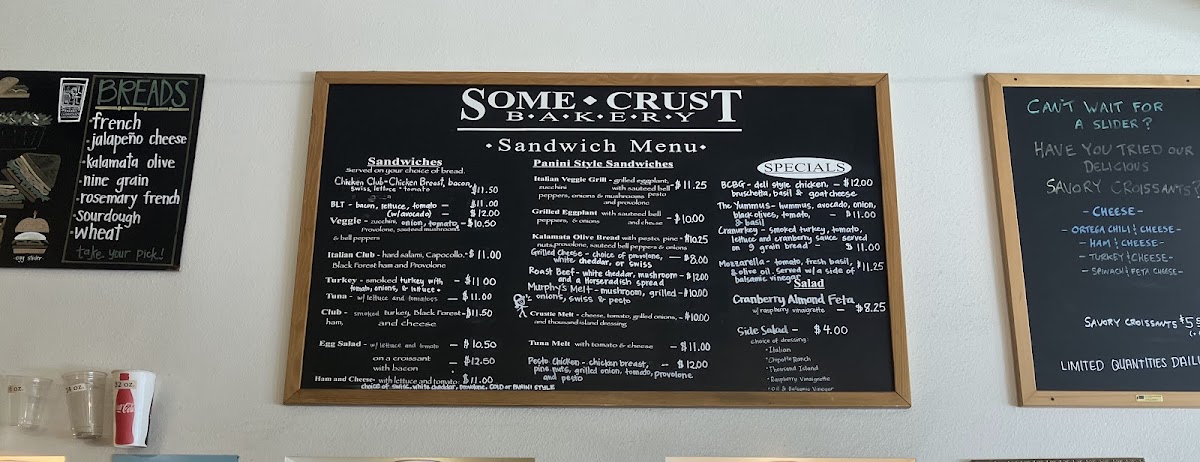 BREADS
·french
·jalapeño cheese
·kalamata olive
·nine grain
·rosemary french
·sourdough
·wheat
take your pick!
egg slider
SOME ◆ CRUST
B·A·K·E·R·Y
·Sandwich Menu·
Sandwiches
Served on your choice of bread.
Chicken Club - Chicken Breast, bacon,
swiss, lettuce + tomato $11.50
BLT - bacon, lettuce, tomato — $11.00
(w/avocado) — $12.00
Veggie - zucchini, onion, tomato, - $10.50
Provolone, sauteed mushrooms
& bell peppers
Italian Club - hard salami, Capocollo, - $11.00
Black Forest ham and Provolone
Turkey - smoked turkey with — $11.00
tomato, onions, & lettuce
Tuna - w/ lettuce and tomatoes — $11.00
Club - smoked turkey, Black Forest - $11.50
ham, and cheese
Egg Salad - w/ lettuce and tomato — $10.50
on a croissant — $12.50
with bacon
Ham and Cheese - with lettuce and tomato - $11.00
choice of swiss, white cheddar, provolone. COLD or PANINI STYLE
Panini Style Sandwiches
Italian Veggie Grill - grilled eggplant, - $11.25
zucchini with sauteed bell
peppers, onions & mushrooms pesto
and provolone
Grilled Eggplant with sauteed bell
peppers, & onions and cheese — $10.00
Kalamata Olive Bread with pesto, pine - $10.25
nuts, provolone, sauteed bell peppers & onions
Grilled Cheese - choice of provolone,
white cheddar, or swiss — $8.00
Roast Beef - white cheddar, mushroom - $12.00
and a Horseradish spread
Murphy's Melt - mushroom, grilled - $10.00
onions, swiss & pesto
Crustie Melt - cheese, tomato, grilled onions, - $10.00
and thousand island dressing
Tuna Melt with tomato & cheese — $11.00
Pesto Chicken - chicken breast, — $12.00
pine nuts, grilled onion, tomato, provolone
and pesto
SPECIALS
BCBG - deli style chicken, — $12.00
bruschetta, basil & goat cheese
The Yummus - hummus, avocado, onion,
black olives, tomato, — $11.00
& basil
Cranurkey - smoked turkey, tomato,
lettuce and cranberry sauce served
on 9 grain bread — $11.00
Mozzarella - tomato, fresh basil, $11.25
& olive oil. served w/ a side of
balsamic vinegar
Salad
Cranberry Almond Feta
w/ raspberry vinaigrette — $8.25
Side Salad — $4.00
choice of dressing:
·Italian
·Chipotle Ranch
·Thousand Island
·Raspberry Vinaigrette
·Oil & Balsamic Vinegar
CAN'T WAIT FOR
A SLIDER?
HAVE YOU TRIED OUR
DELICIOUS
SAVORY CROISSANTS?
- CHEESE -
- ORTEGA CHILI & CHEESE -
- HAM & CHEESE -
- TURKEY & CHEESE -
- SPINACH & FETA CHEESE -
SAVORY CROISSANTS $5
LIMITED QUANTITIES DAIL
oz.
oz.
32 oz.
Coca-Cola